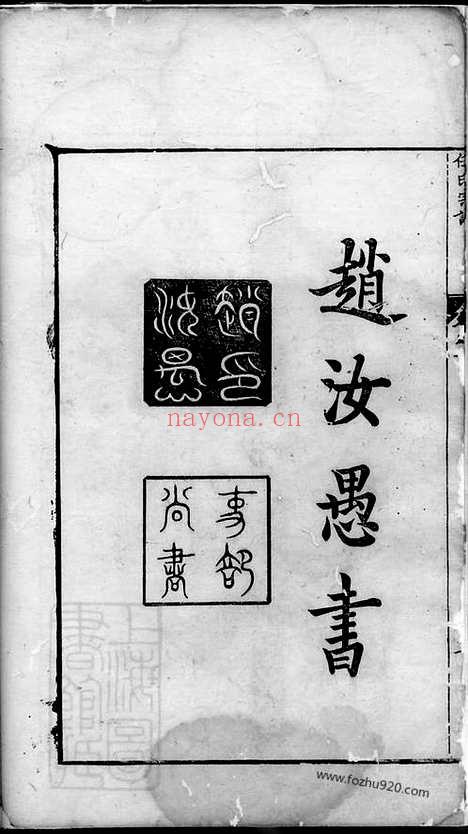 趙汝愚書
趙印汝愚
吏部尚書
nayona.cn
www.fozhu920.com